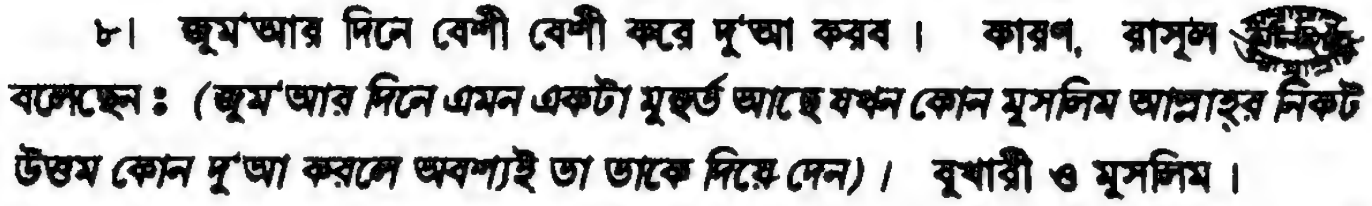 ৮। জুম'আর দিনে বেশী বেশী করে দু'আ করব। কারণ, রাসূল
বলেছেন ঃ (জুম'আর দিনে এমন একটা মুহূর্ত আছে যখন কোন মুসলিম আল্লাহ্‌র নিকট
উত্তম কোন দু'আ করলে অবশ্যই তা তাকে দিয়ে দেন)। বুখারী ও মুসলিম।